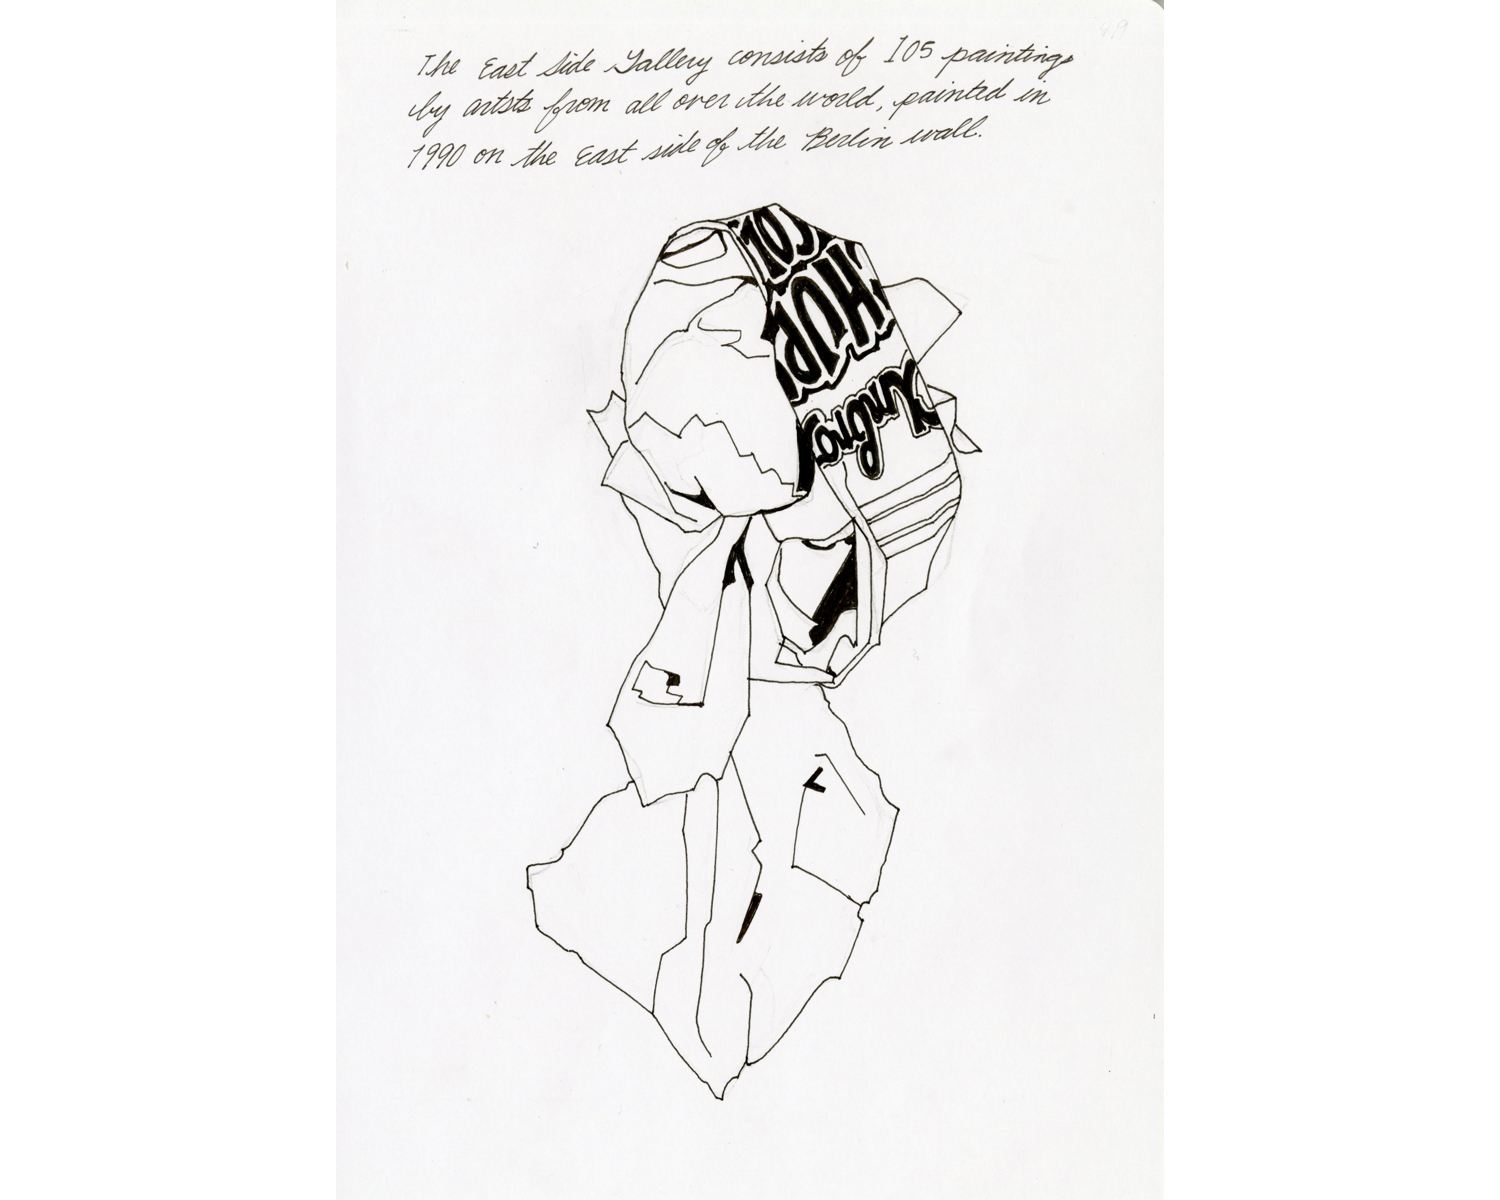 The East Side Gallery consists of 105 paintings
by artsts from all over the world, painted in
1990 on the East side of the Berlin wall.